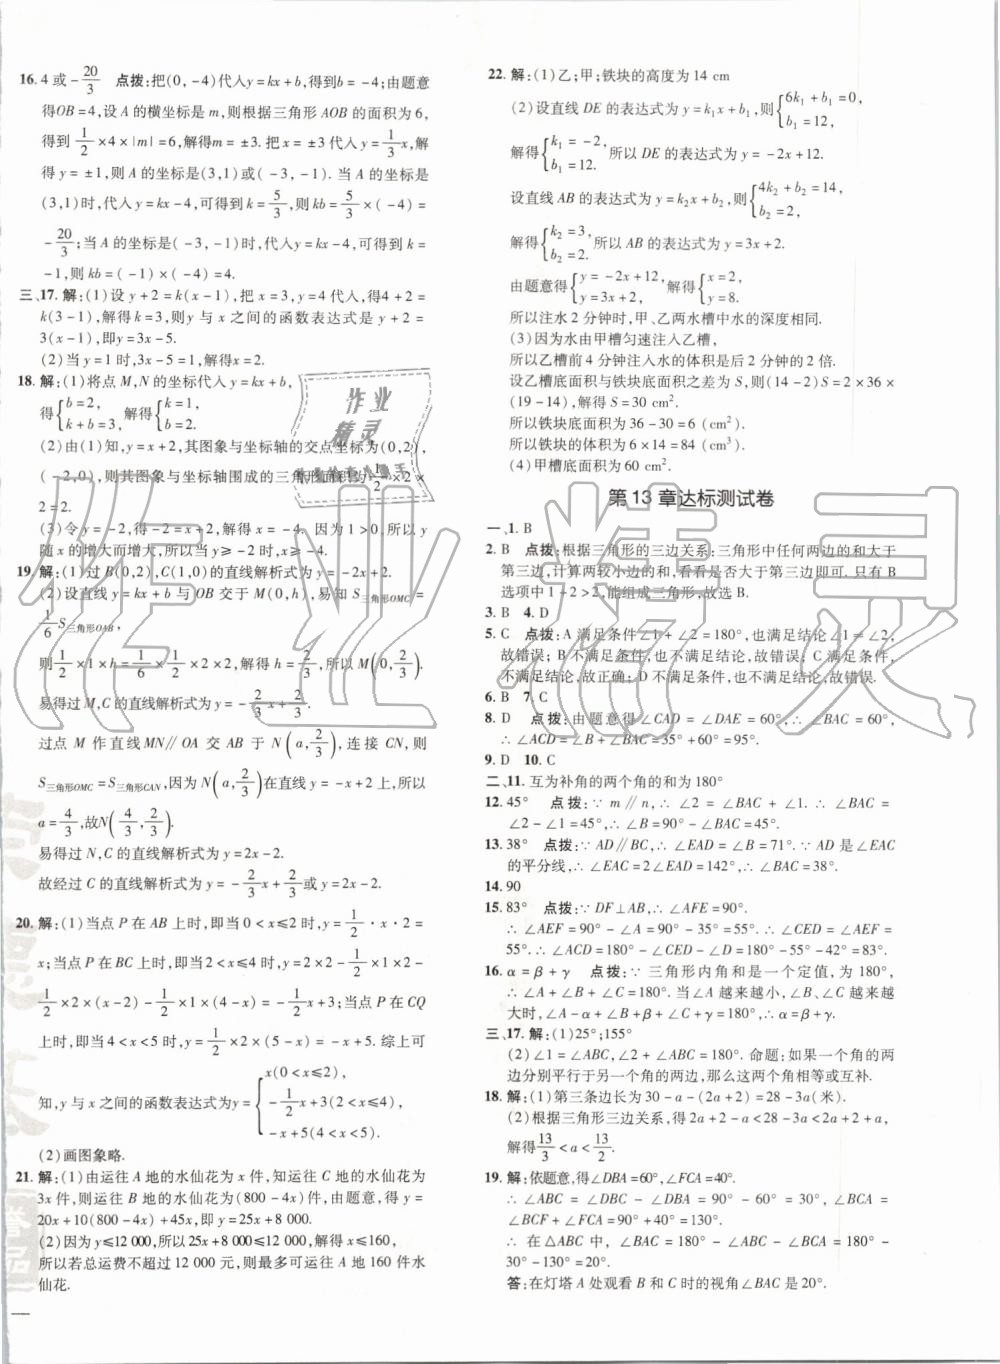 16. 4 或 -20/3  点拨:把(0, -4)代入y=kx+b,得到b=-4;由题意
得OB=4,设 A 的横坐标是 m,则根据三角形 AOB 的面积为 6,
得到 1/2×4×|m|=6,解得m=±3.把 x=±3 代入 y=1/3x,解
得 y=±1,则 A 的坐标是(3,1)或(-3,-1).当 A 的坐标是
(3,1)时,代入 y=kx-4,可得到 k=5/3,则 kb=5/3×(-4)=
-20/3;当 A 的坐标是(-3,-1)时,代入 y=kx-4,可得到 k=
-1,则 kb=(-1)×(-4)=4.
三、17. 解:(1)设 y+2=k(x-1),把 x=3,y=4 代入,得4+2=
k(3-1),解得 k=3,则y 与 x 之间的函数表达式是 y+2=
3(x-1),即y=3x-5.
(2)当 y=1 时,3x-5=1,解得x=2.
18. 解:(1)将点 M,N 的坐标代入 y=kx+b,
得{b=2, k+b=3, 解得{k=1, b=2.
(2)由(1)知,y=x+2,其图象与坐标轴的交点坐标为(0,2),
(-2,0),则其图象与坐标轴围成的三角形面积为=1/2×2×
2=2.
(3)令 y=-2,即-2=x+2,解得 x=-4.因为 k=1>0,所以 y
随 x 的增大而增大,所以当 y≥-2 时,x≥-4.
19. 解:(1)过 B(0,2),C(1,0)的直线解析式为y=-2x+2.
(2)设直线 y=kx+b 与 OB 交于 M(0,h),易知 S三角形OMC=
1/6 S三角形OAB,
则 1/2×1×h=1/6×1/2×2×2,解得 h=2/3,所以 M(0,2/3).
易得过 M,C 的直线解析式为 y=-2/3x+2/3.
过点 M 作直线MN∥OA 交 AB 于 N(a,2/3),连接 CN,则
S三角形OMC=S三角形CAN,因为 N(a,2/3)在直线 y=-x+2 上,所以
a=4/3,故N(4/3,2/3).
易得过 N,C 的直线解析式为 y=2x-2.
故经过 C 的直线解析式为 y=-2/3x+2/3或 y=2x-2.
20. 解:(1)当点 P 在 AB 上时,即当 0<x≤2 时,y=1/2·x·2=
x;当点 P 在 BC 上时,即当 2<x≤4 时,y=2×2-1/2×1×2-
1/2×2×(x-2)-1/2×1×(4-x)=-1/2x+3;当点 P 在 CQ
上时,即当 4<x<5 时,y=1/2×2×(5-x)=-x+5.综上可
知,y 与 x 之间的函数表达式为y={x(0<x≤2), -1/2x+3(2<x≤4), -x+5(4<x<5).
(2)画图象略.
21. 解:(1)由运往 A 地的水仙花为 x 件,知运往 C 地的水仙花为
3x 件,则运往 B 地的水仙花为(800-4x)件,由题意,得 y=
20x+10(800-4x)+45x,即 y=25x+8 000.
(2)因为 y≤12 000,所以25x+8 000≤12 000,解得 x≤160,
所以若总运费不超过 12 000 元,则最多可运往 A 地 160 件水
仙花.
22. 解:(1)乙;甲;铁块的高度为 14 cm
(2)设直线 DE 的表达式为 y=k₁x+b₁,则{6k₁+b₁=0, b₁=12,
解得{k₁=-2, b₁=12. 所以 DE 的表达式为 y=-2x+12.
设直线 AB 的表达式为 y=k₂x+b₂,则{4k₂+b₂=14, b₂=2,
解得{k₂=3, b₂=2. 所以 AB 的表达式为 y=3x+2.
由题意得{y=-2x+12, y=3x+2, 解得{x=2, y=8.
所以注水 2 分钟时,甲、乙两水槽中水的深度相同.
(3)因为水由甲槽匀速注入乙槽,
所以乙槽前 4 分钟注入水的体积是后 2 分钟的 2 倍.
设乙槽底面积与铁块底面积之差为 S,则(14-2)S=2×36×
(19-14),解得 S=30 cm².
所以铁块底面积为 36-30=6(cm²).
所以铁块的体积为 6×14=84(cm³).
(4)甲槽底面积为 60 cm².
第 13 章达标测试卷
一、1. B
2. B  点拨:根据三角形的三边关系:三角形中任何两边的和大于
第三边,计算两较小边的和,看看是否大于第三边即可.只有 B
选项中 1+2>2,能组成三角形,故选 B.
3. B  4. D
5. C  点拨:A 满足条件∠1+∠2=90°,也满足结论∠1=∠2,
故错误;B 不满足条件,也不满足结论,故错误;C 满足条件,
不满足结论,故正确;D 不满足条件,也不满足结论,故错误.
6. B  7. C
8. D  点拨:由题意得∠CAD=∠DAE=60°,∴∠BAC=60°,
∴∠ACD=∠B+∠BAC=35°+60°=95°.
9. D  10. C
二、11. 互为补角的两个角的和为 180°
12. 45°  点拨:∵m∥n,∴∠2=∠BAC+∠1.∴∠BAC=
∠2-∠1=45°,∴∠B=90°-∠BAC=45°.
13. 38°  点拨:∵AD∥BC,∴∠EAD=∠B=71°.∵AD 是∠EAC
的平分线,∴∠EAC=2∠EAD=142°,∴∠BAC=38°.
14. 90
15. 83°  点拨:∵DF⊥AB,∴∠AFE=90°.
∴∠AEF=90°-∠A=90°-35°=55°,∴∠CED=∠AEF=
55°.∴∠ACD=180°-∠CED-∠D=180°-55°-42°=83°.
16. α=β+γ  点拨:∵三角形内角和是一个定值,为 180°,
∴∠A+α=∠A+β+γ=180°.当∠A 越来越小,∠B,∠C 越来越
大时,∠A-α+∠B+β+∠C+γ=180°,∴α=β+γ.
三、17. 解:(1)25°;155°
(2)∠1=∠ABC,∠2+∠ABC=180°.命题:如果一个角的两
边分别平行于另一个角的两边,那么这两个角相等或互补.
18. 解:(1)第三条边长为 30-a-(2a+2)=28-3a(米).
(2)根据三角形三边关系,得 2a+2-a<28-3a<2a+2+a,
解得 13/3<a<13/2.
19. 解:依题意,得∠DBA=60°,∠FCA=40°.
∴∠ABC=∠DBC-∠DBA=90°-60°=30°,∠BCA=
∠BCF+∠FCA=90°+40°=130°.
∴在△ABC 中,∠BAC=180°-∠ABC-∠BCA=180°-
30°-130°=20°.
答:在灯塔 A 处观看 B 和 C 时的视角∠BAC 是 20°.
作业精灵
作业
精灵